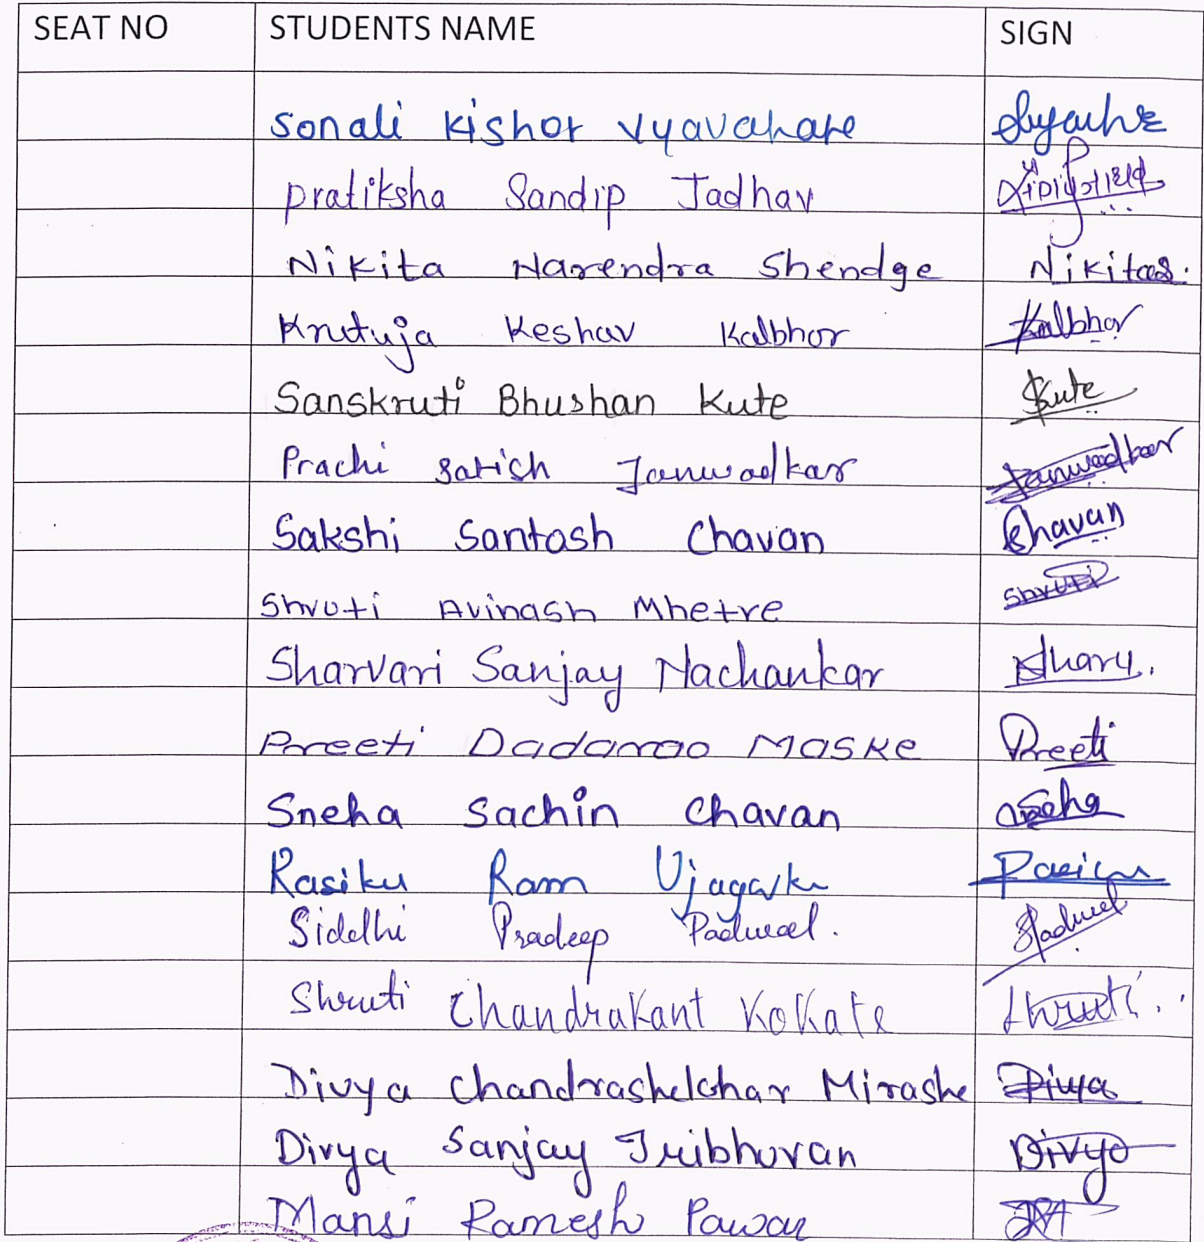 SEAT NO STUDENTS NAME SIGN
Sonali Kishor Vyavahare
Pratiksha Sandip Jadhav
Nikita Narendra Shendge Nikitas.
Krutuja Keshav Kalbhor Kalbhor
Sanskruti Bhushan Kute Kute
Prachi Satish Janwadkar Janwadkar
Sakshi Santosh Chavan Chavan
Shruti Avinash Mhetre Shruti
Sharvari Sanjay Nachankar
Preeti Dadarao Maske Preeti
Sneha Sachin Chavan
Rasika Ram Ujagarke
Siddhi Pradeep Padwal. Padwal
Shruti Chandrakant Kokate Shruti.
Divya Chandrashekhar Mirashe Divya
Divya Sanjay Tribhuvan Divya
Mansi Ramesh Pawar